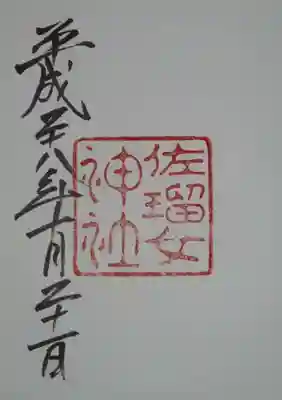 佐瑠女
神社
平成二十八年十月二十一日